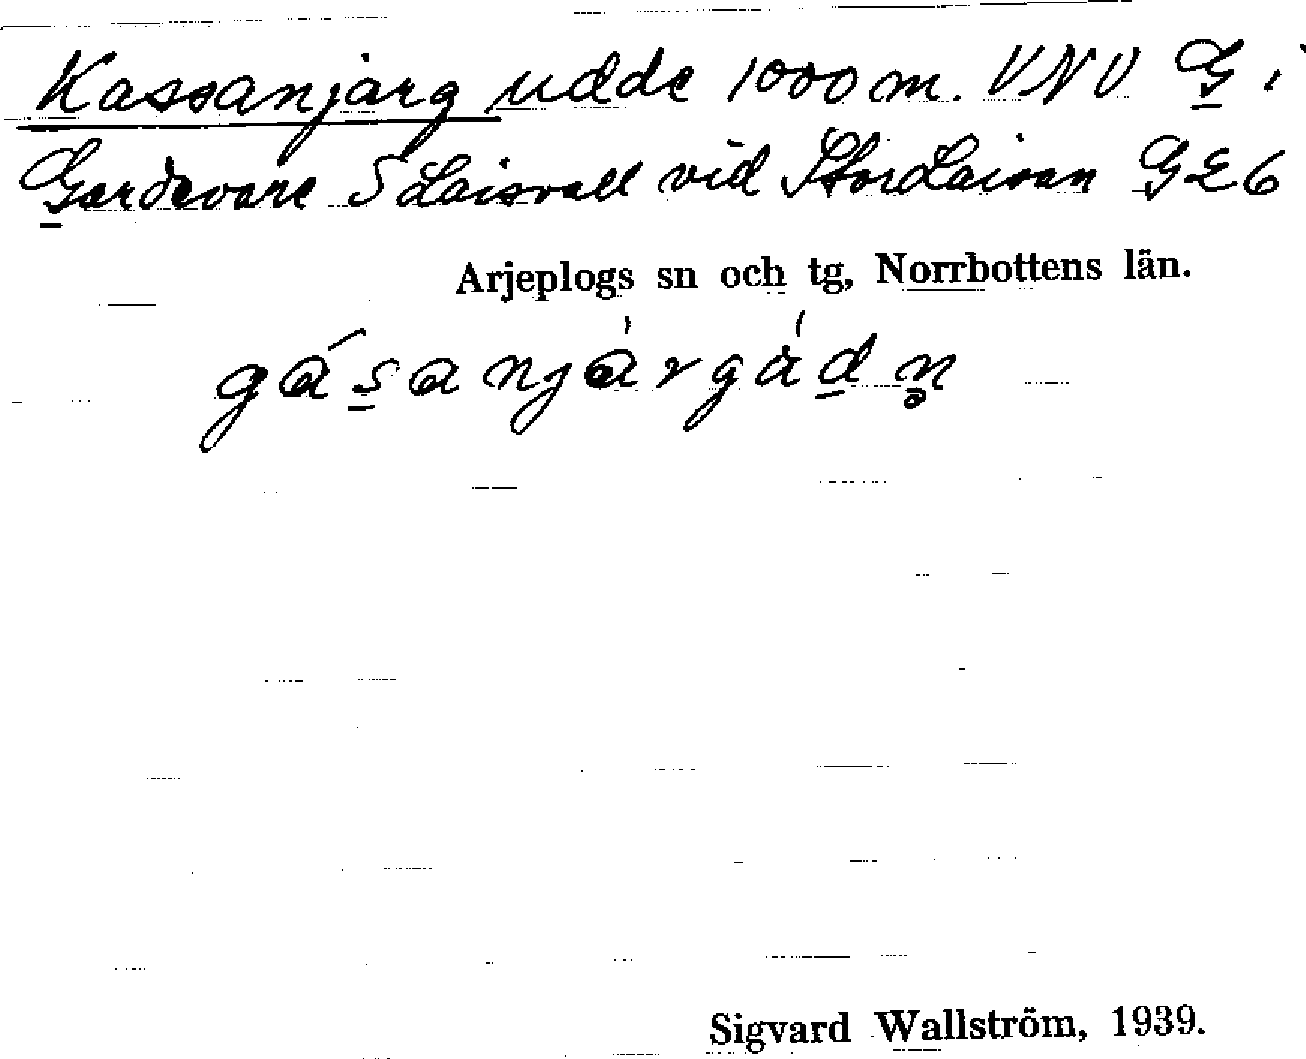 Kassanjarg udde 1000 m. VNV G i
Gardevare S Laisvall vid StorLaisan G E 6
Arjeplogs sn och tg, Norrbottens län.
gásanjàrgàdn
Sigvard Wallström, 1939.